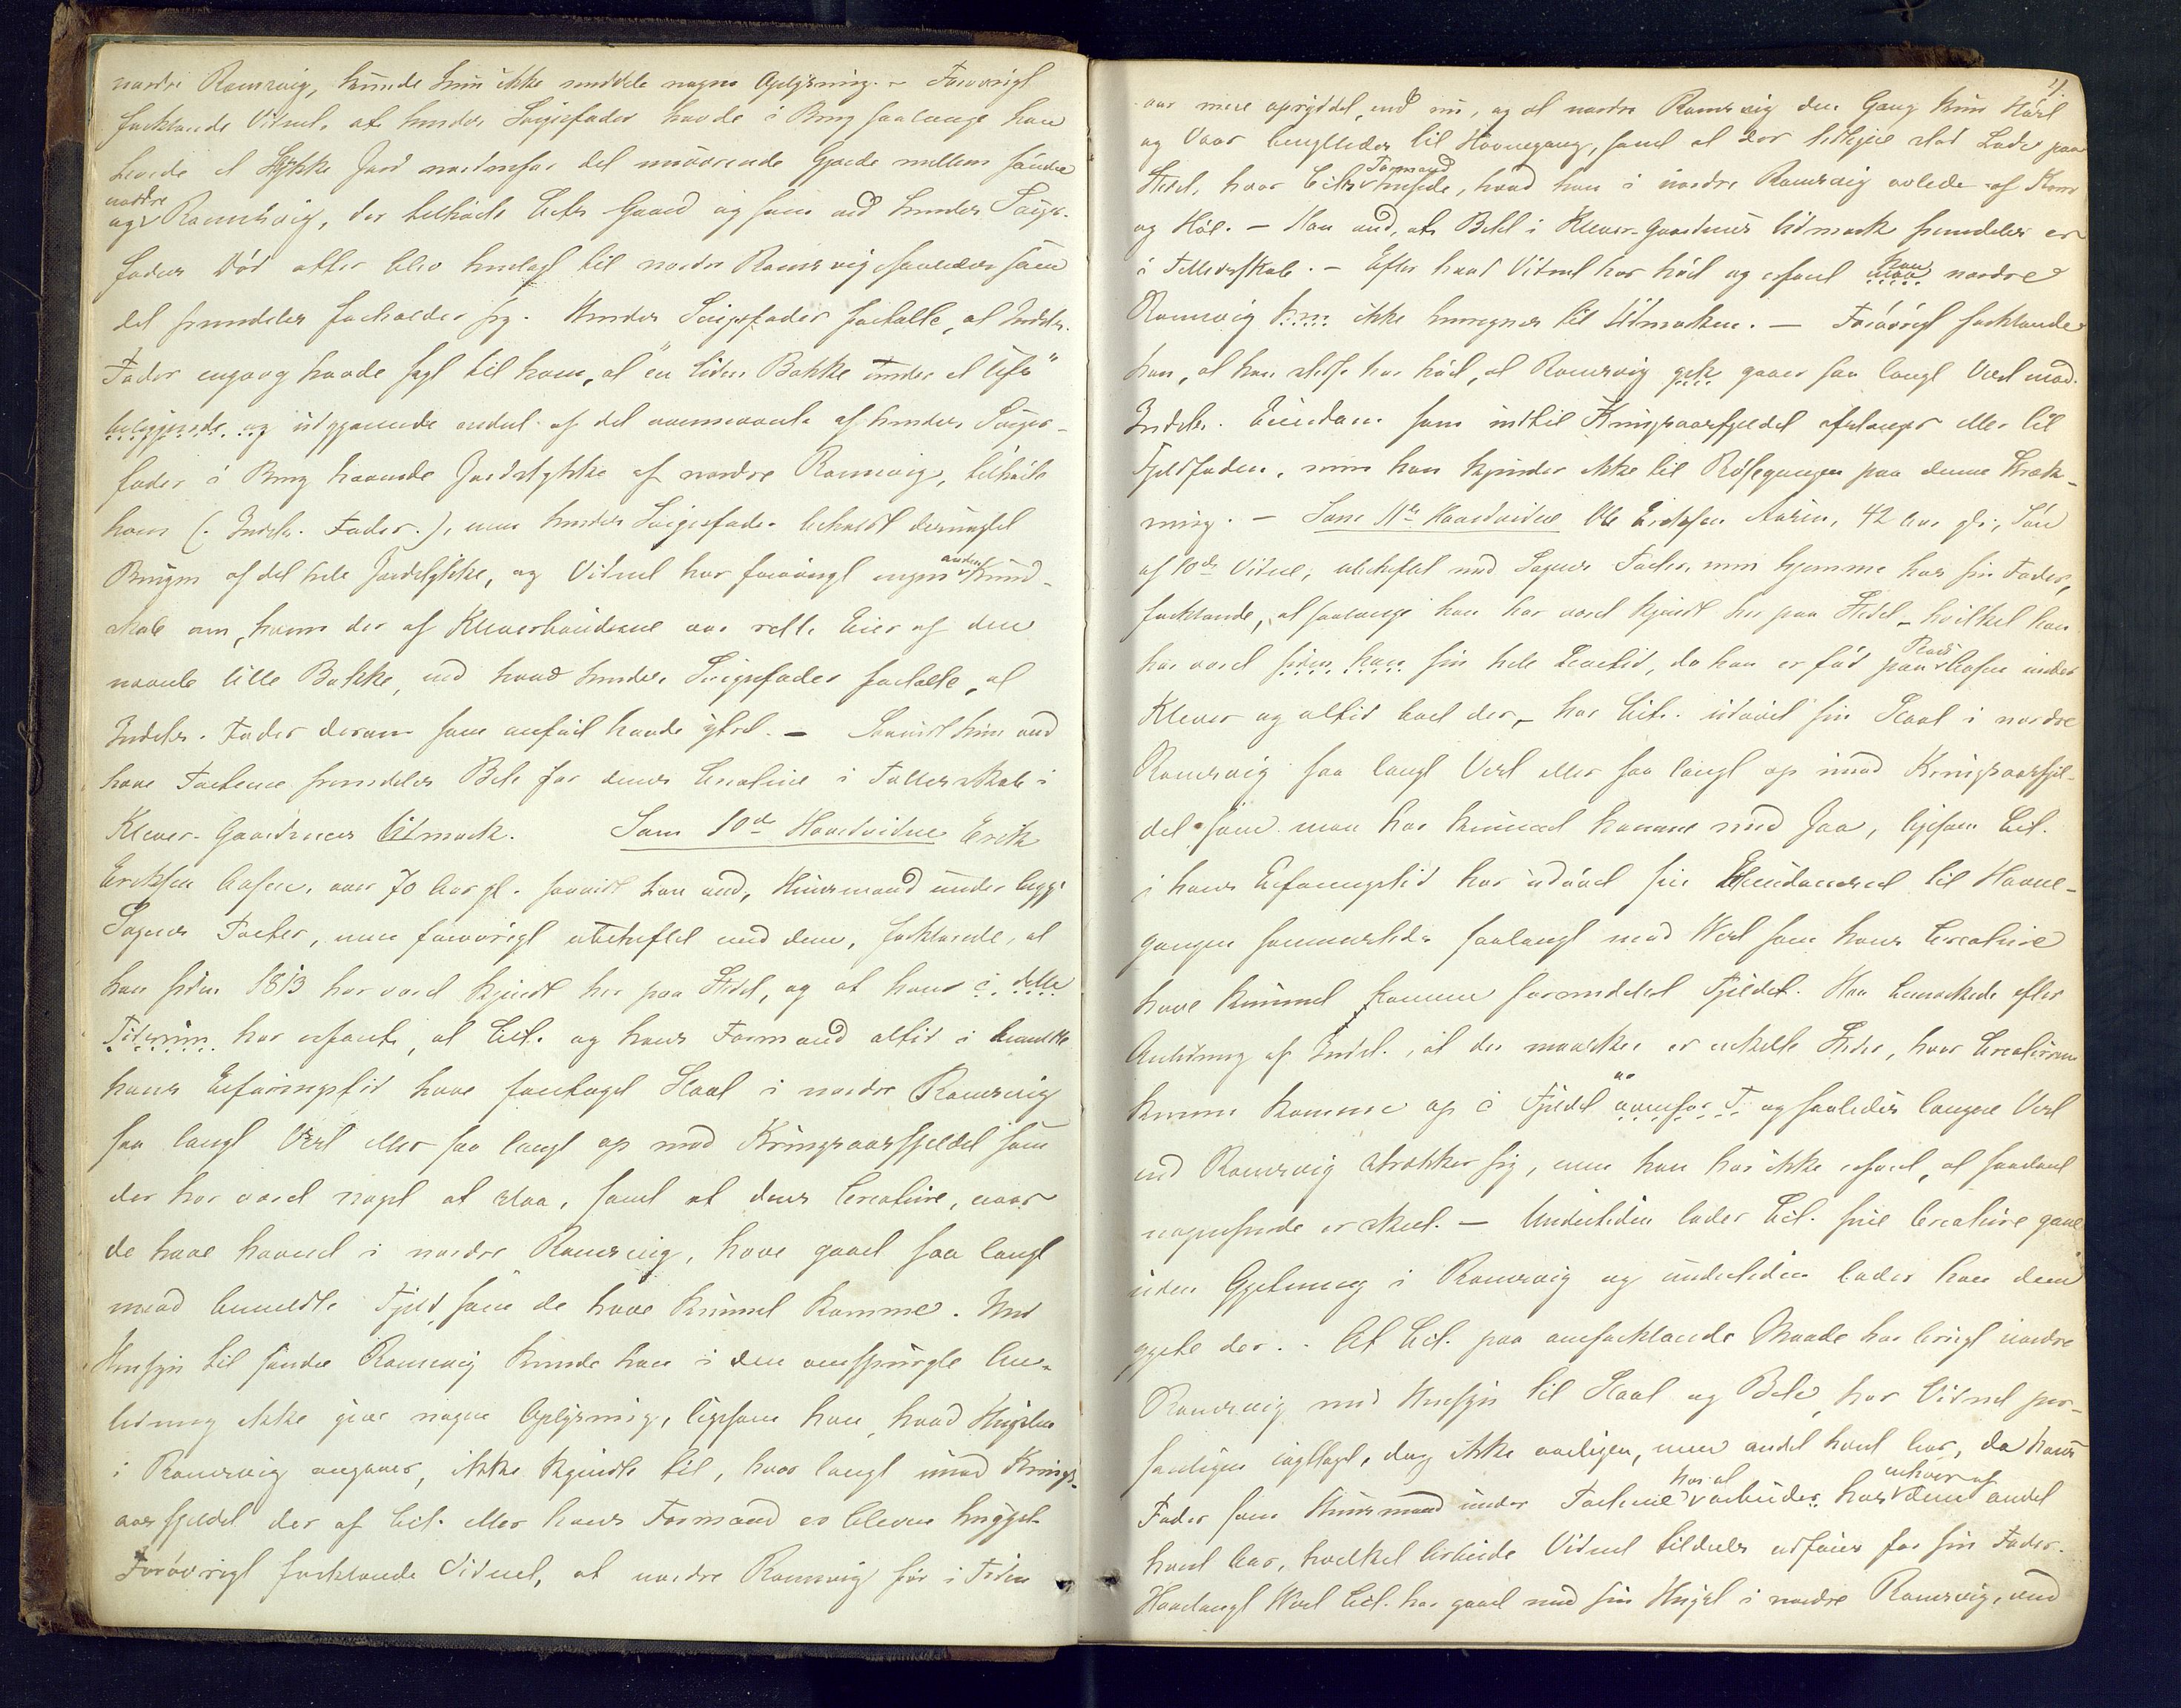 nordre Ramsvig, kunde hun ikke meddele nogen Oplysning. – Forøvrigt
forklarede Vidnet, at hendes Svigerfader havde i Brug saalænge han
levede et Stykke Jord nordenfor det nuværende Gjerde mellem søndre
og nordre Ramsvig, der tilhørte Cit's Gaard og som ved hendes Sviger-
faders Død atter blev henlagt til nordre Ramsvig saaledes som
det fremdeles forholder sig. Hendes Svigerfader fortalte, at Indst.
Fader engang havde sagt til ham, at "en liden Bakke under et Ufs"
beliggende og udgjørende endeel af det ovennævnte af hendes Sviger-
fader i Brug havende Jordstykke af nordre Ramsvig, tilhørte
ham (: Indst. Fader :), men hendes Svigerfader beholdt desuagtet
Brugen af det hele Jordstykke, og Vidnet har forøvrigt ingen anden Kund-
skab om, hvem der af Klevershaugene var rette Eier af den
nævnte lille Bakke, end hvad hendes Svigerfader fortalte, at
Indst. Fader derom som anført havde ytret. – Saavidt hun ved
have Parterne fremdeles Bete for deres Creature i Fællesskab i
Klever-Gaardenes Udmark. Som 10de Hovedvidne Erik
Eriksen Aasen, over 70 Aar gl. saavidt han ved, Huusmand under begge
Sagens Parter, men forøvrigt ubeslægtet med dem, forklarede, at
han siden 1813 har været kjendt her paa Stedet, og at han i dette
Tidsrum har erfaret, at Cit. og hans Formand altid i bemeldte
hans Erfaringstid have foretaget Slaat i nordre Ramsvig
saa langt Vest eller saa langt op mod Kringsaasfjeldet som
der har været noget at slaa, samt at deres Creature, naar
de have havnet i nordre Ramsvig, have gaaet saa langt
mod bemeldte Fjeld, som de have kunnet komme. Med
Hensyn til søndre Ramsvig kunde han i den omspurgte An-
ledning ikke give nogen Oplysning, ligesom han, hvad Hugsten
i Ramsvig angaaer, ikke kjendte til, hvor langt imod Krings-
aasfjeldet der af Cit. eller hans Formand er bleven hugget.
Forøvrigt forklarede Vidnet, at nordre Ramsvig før i Tiden
11.
var mere opryddet, end nu, og at nordre Ramsvig den Gang kun Høst
og Vaar benyttedes til Havnegang, samt at der tidligere stod Lade paa
Stedet, hvor Cit's Formand havde, hvad han i nordre Ramsvig avlede af Korn
og Hø. – Han ved, at Betet i Klever-Gaardenes Udmark fremdeles er
i Fællesskab. – Efter hvad Vidnet har hørt og erfaret kan nordre
Ramsvig kun ikke henregnes til Udmarken. – Forøvrigt forklarede
han, at han altid har hørt, at Ramsvig gik gaaer saa langt Vest mod
Indst. Eiendom som indtil Kringsaasfjeldet afstænger eller til
Fjeldfoden, men han kjender ikke til Delegangen paa denne Stræk-
ning. – Som 11te Hovedvidne Ole Eriksen Aasen, 42 Aar gl., Søn
af 10de Vidne, ubeslægtet med Sagens Parter, men hjemme hos sin Fader,
forklarede, at saalænge han har været kjendt her paa Stedet – hvilket han
har været siden han sin hele Levetid, da han er født paa Plads Aasen under
Klever og altid boet der – har Cit. udøvet sin Slaat i nordre
Ramsvig saa langt Vest eller saa langt op imod Kringsaasfjel-
det som man har kunnet komme med Ljaa, ligesom Cit.
i hans Erfaringstid har udøvet sin Eiendomsret til Havne-
gangen sammesteds saalangt mod Vest som hans Creature
have kunnet komme formedelst Fjeldet. Han bemærkede efter
Anledning af Indst., at der maaskee er enkelte Steder, hvor Creaturene
kunne komme op i Fjeldet ovenfor F. og saaledes længere Vest
end Ramsvig strækker sig, men han har ikke erfaret, at saadant
nogensinde er skeet. – Undertiden lader Cit. sine Creature gaae
uden Gjetning i Ramsvig og undertiden lader han dem
gjete der. – At Cit. paa omforklarede Maade har brugt nordre
Ramsvig med Hensyn til Slaat og Bete, har Vidnet per-
sonligen iagttaget, dog ikke aarligen, men andet hvert Aar, da hans
Fader som Huusmand under Parterne har at arbeide hos enhver af dem andet
hvert Aar, hvilket Arbeide Vidnet tildeels udfører for sin Fader.
Hvorlangt Vest Cit. har gaaet med sin Hugst i nordre Ramsvig, ved